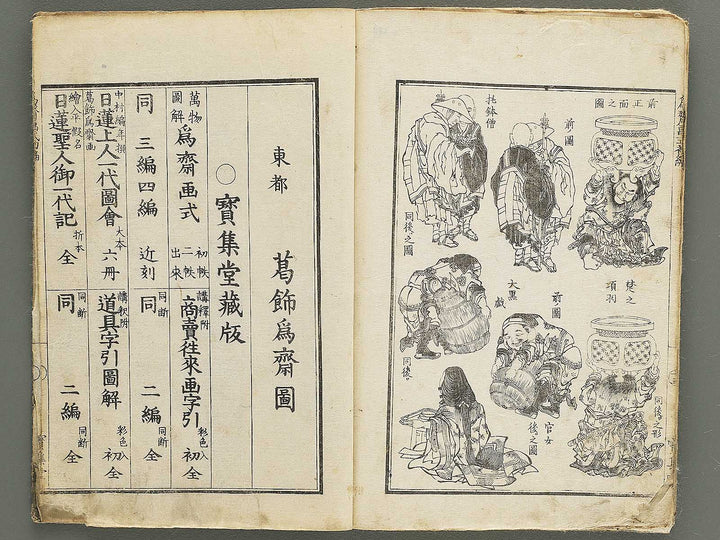 前正面之圖
楚之
項羽
同後之形
前圖
托鉢僧
同後之圖
大黒
戯
前圖
同後
官女
後之圖
東都 葛飾為齋圖
○寳集堂藏版
萬物圖解 為齋画式 初帙 二帙 出來
講釋附 商賣徃來画字引 彩色入 初 全
同 三編四編 近刻
同断 同 二編 同断 全
中村經年撰 葛飾為齋画 日蓮上人一代圖會 大本 六冊
講釈附 道具字引圖解 彩色入 初 全
繪入平假名 日蓮聖人御一代記 折本 全
同断 同 二編 同断 全